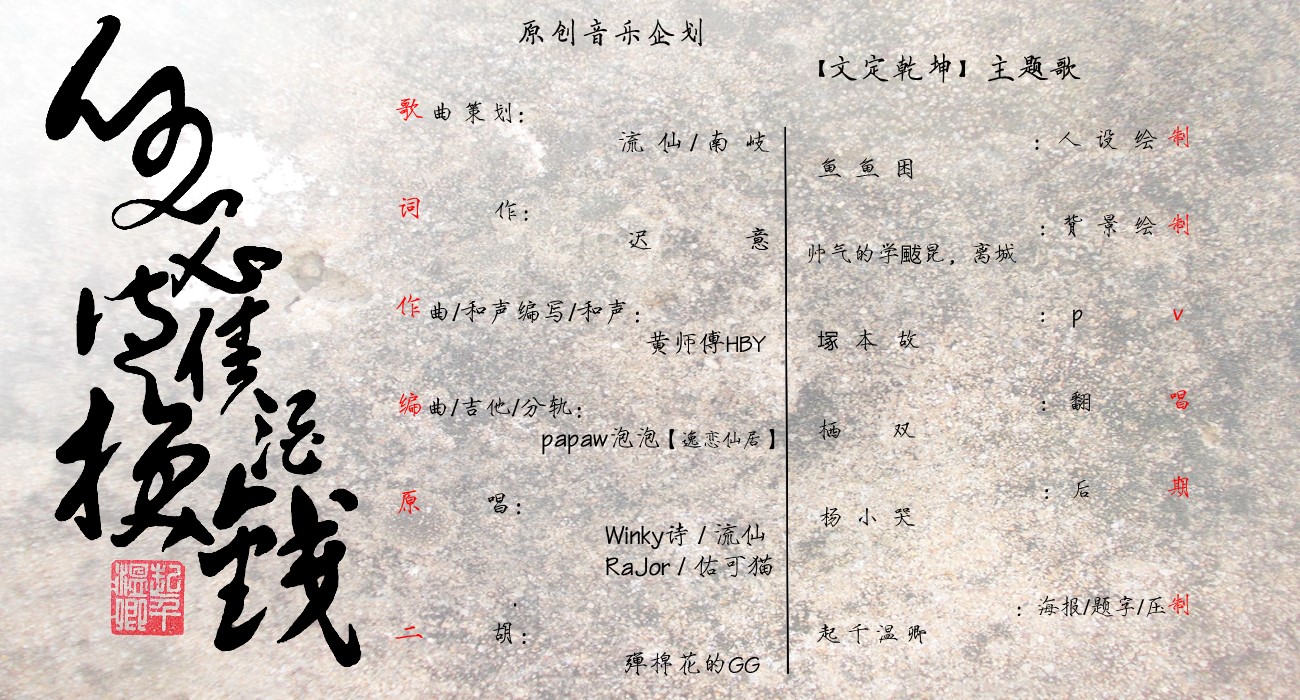 何必
诗债
换酒錢
起千
溫卿
原创音乐企划
【文定乾坤】主题歌
歌曲策划：
流仙/南岐
词作：
迟意
作曲/和声编写/和声：
黄师傅HBY
编曲/吉他/分轨：
papaw泡泡【逸恋仙居】
原唱：
Winky诗 / 流仙
RaJor / 佑可猫
二胡：
弹棉花的GG
：人设绘制
鱼鱼困
：背景绘制
帅气的学颰昆，离城
：pv
塚本故
：翻唱
栖双
：后期
杨小哭
：海报/题字/压制
起千温卿